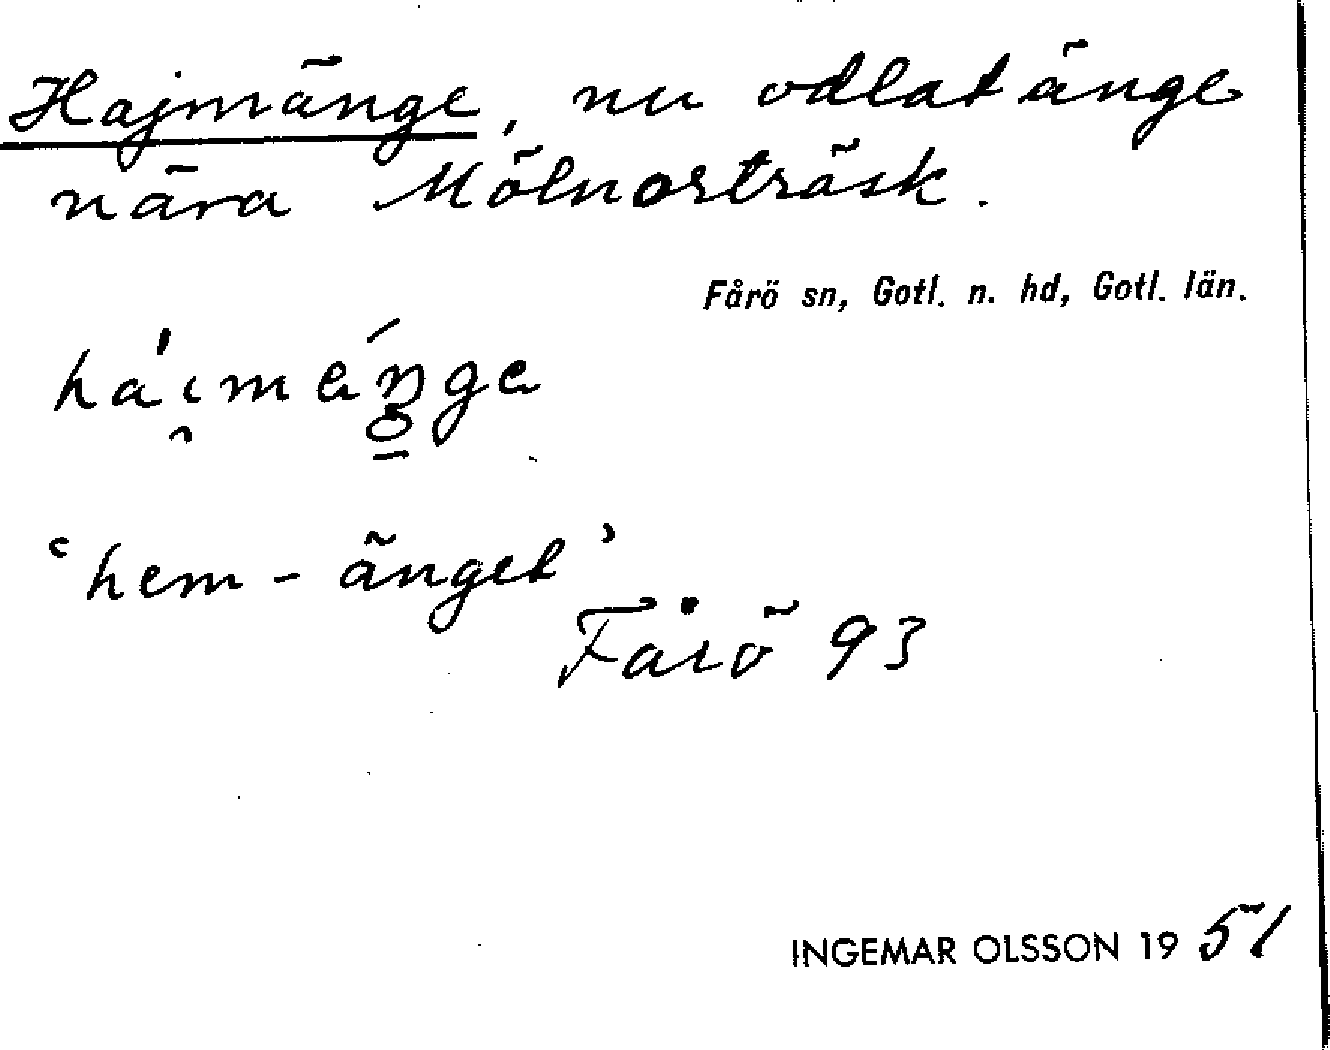 Hajmänge, nu odlat änge
nära Mölnorträsk.
Fårö sn, Gotl. n. hd, Gotl. län.
'hem-änget'
Fårö 93
INGEMAR OLSSON 1951